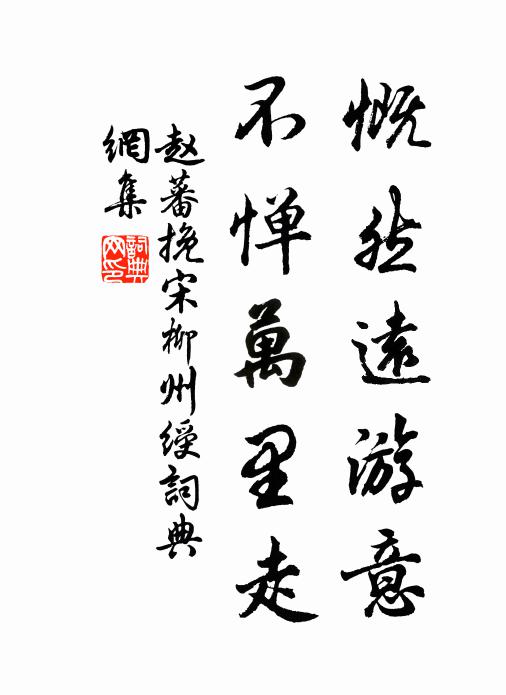 慨然遠游意
不惮萬里走
赵蕃挽宋柳州綬詞典
網集
詞典
网印